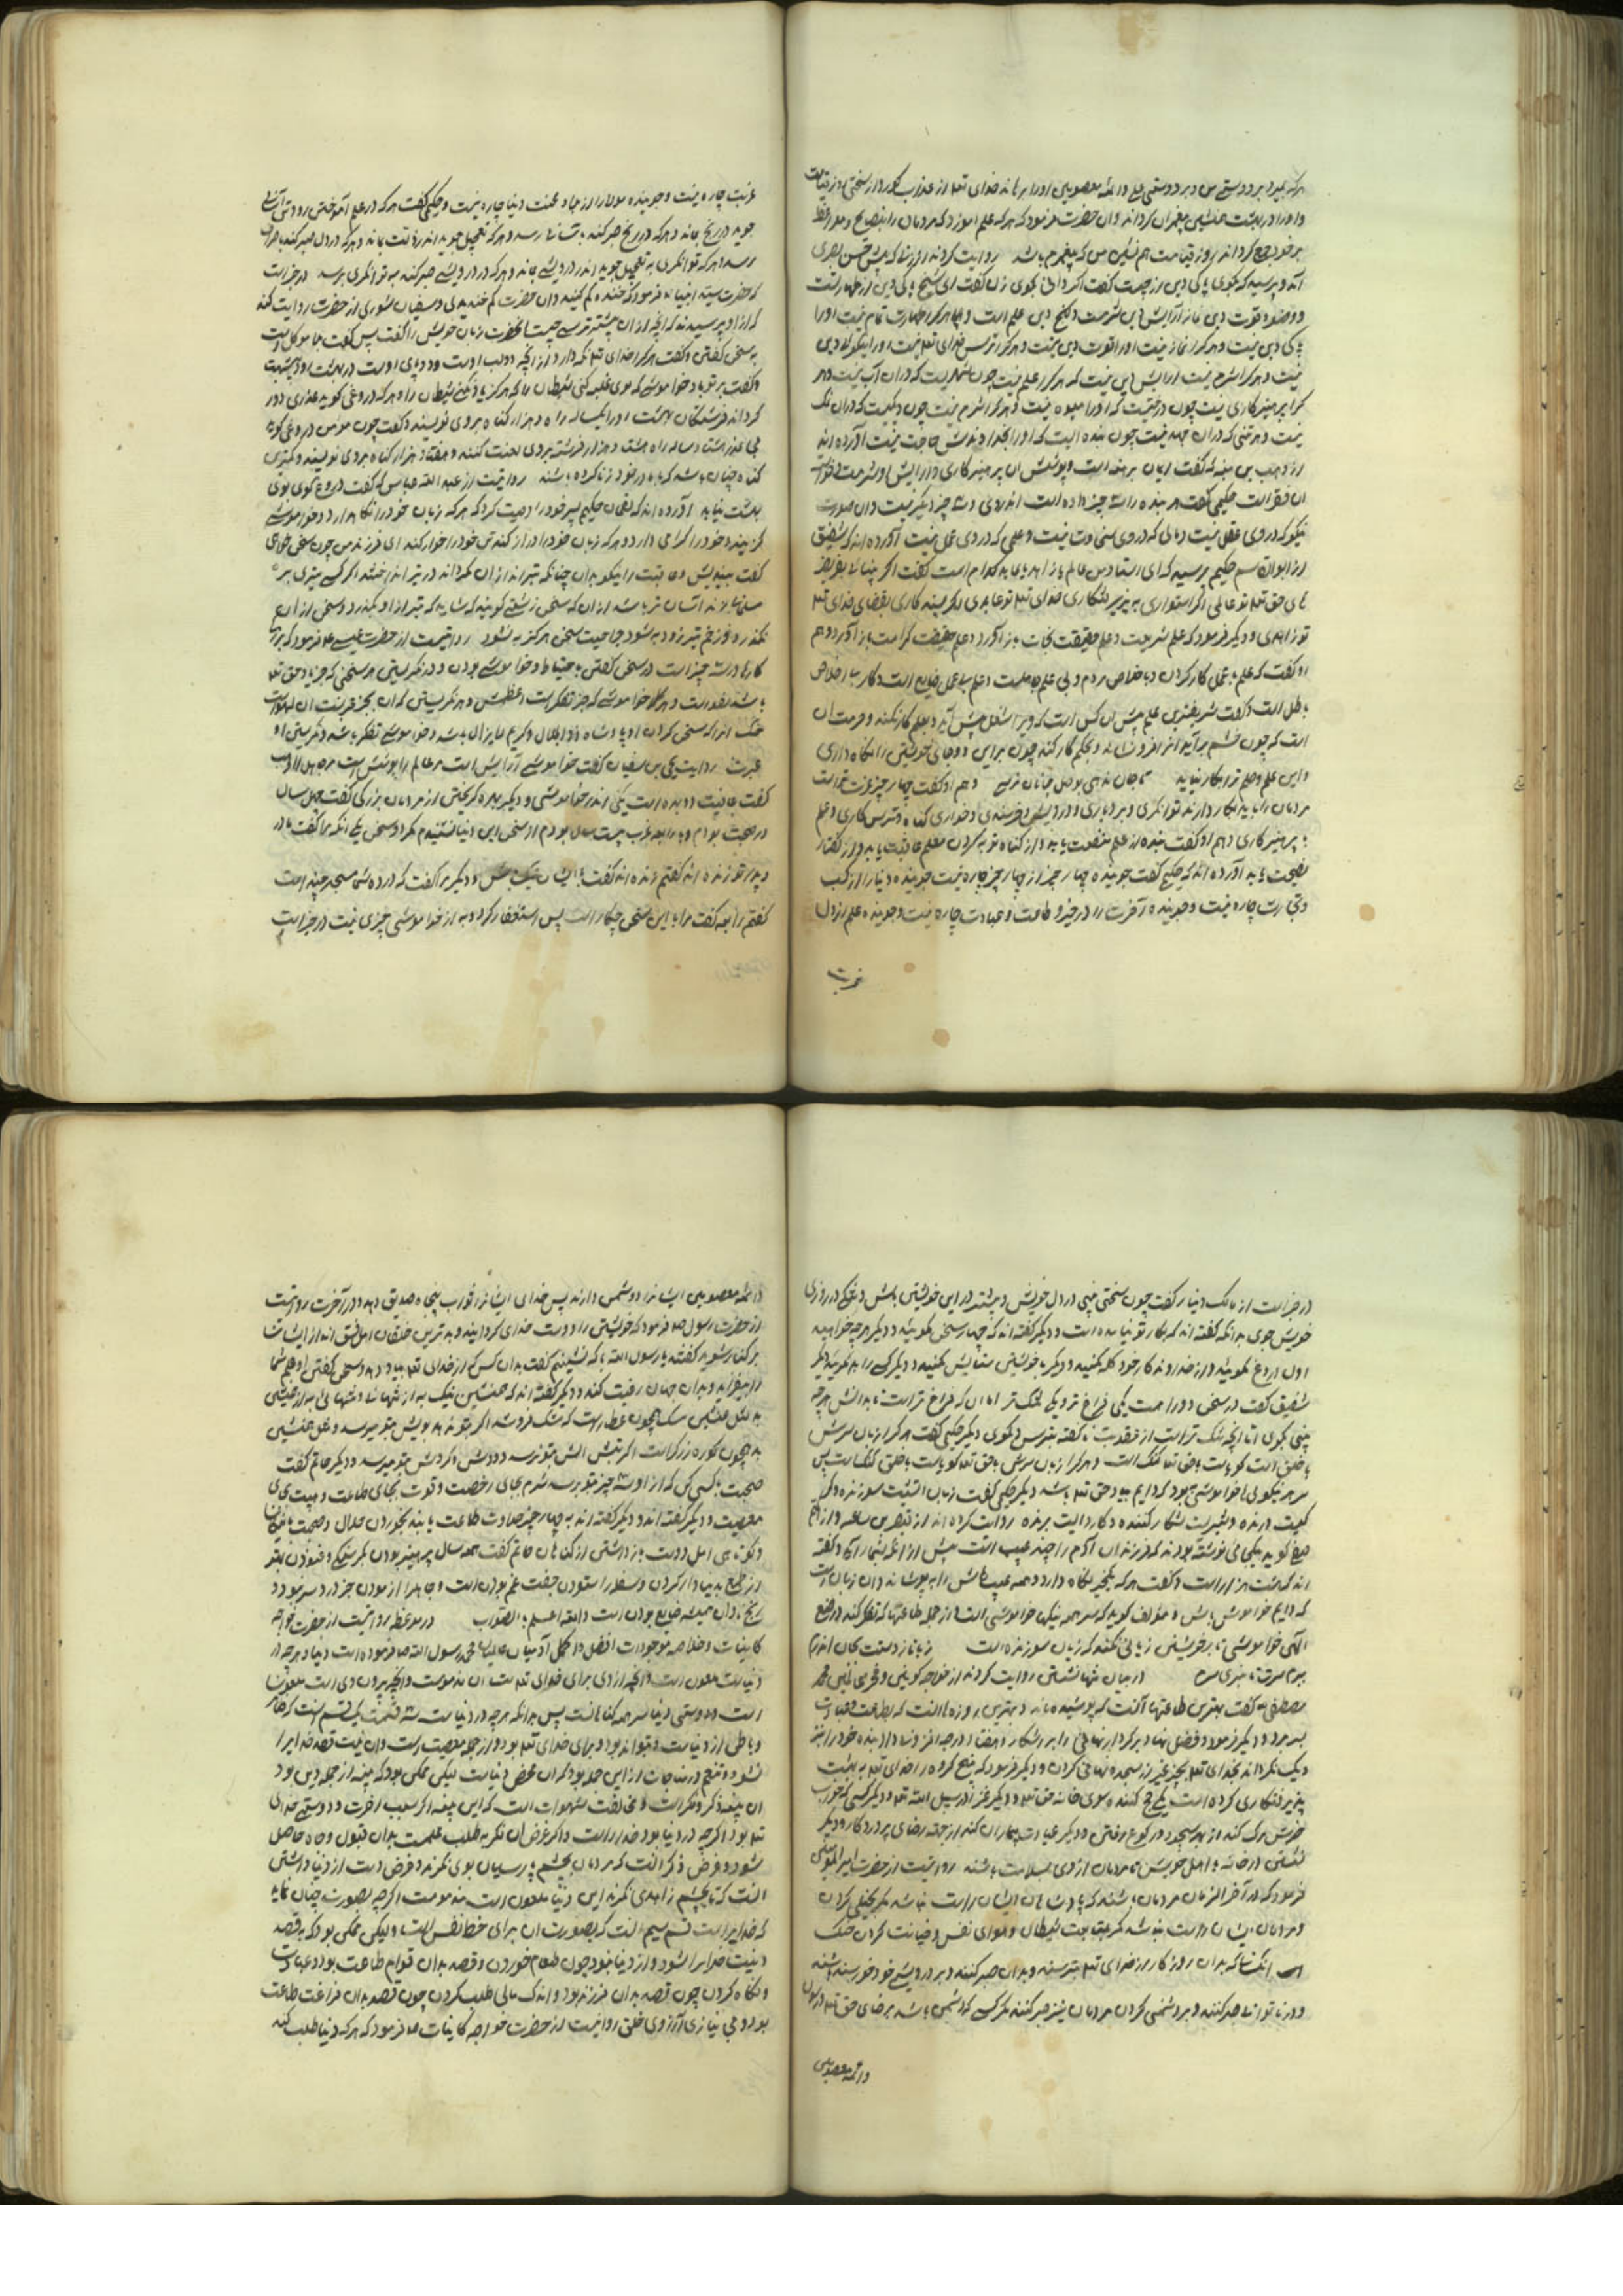 هرکه بمیرد بر دوستی من و بر دوستی علی و ائمه معصومین او را برهاند خدای تعلا از عذاب کور و از سختی روز قیامت
و او را در بهشت همنشین پیغمبران کرداند و ان حضرت فرمود که هرکه علم اموزد که مردمان را نصیحت و مواعظ
بر خود جمع کرداند روز قیامت هم نشین من که پیغمبرم باشد روایت کردند از
آمد و پرسید که بکوی پاکی دین از چیست گفت اکر دانی بکوی زن گفت ای شیخ پاکی دین از طهارتست
و وضو و قوت دین نماز آرایش دین شرمست و کنج دین علم است و هرکرا طهارت تمام نیست او را
پاکی دین نیست و هرکرا نماز نیست او را قوت دین نیست و هرکرا ترس خدای تعلا نیست او را نیکوئی دین
نیست و هرکرا شرم نیست ارایش دین نیست که هرکرا علم نیست چون است که در ان آب نیست و هر
کرا پرهیزکاری نیست چون درختیست که او را میوه نیست و هرکرا شرم نیست چون دیکیست که در ان نمک
نیست و هر تنی که در ان جهد نیست چون بنده ایست که او را بخداوندش حاجت نیست آورده اند
از وهب بن منبه که گفت ایمان برهنه است و پوشش ان پرهیزکاری و ارایش او شرمست و
ان فقر است حکیمی گفت هر بنده را سه چیز داده است اندر وی و سه چیز دیکر نیست و ان صورت
نیکو که در وی عقل نیست و مالی که در وی سخاوت نیست و علمی که در وی عمل نیست آورده اند که شقیق
از ابوالقاسم حکیم پرسید که ای استاد من عالم یا زاهد یا عابد کدام است گفت اکر
های حق تعلا تو عالمی اکر استواری به پذیرفتکاری خدای تعلا تو عابدی و اکر بسنده کاری بقضای خدای تعلا
تو زاهدی و دیکر فرمود که علم شریعت و علم حقیقت نجات باز آورد و علم حقیقت کرامت باز آورد و هم
او گفت که علم بی عمل کار کردن و با خلاص مردم و بی علم و علم بی عمل ضایع است و کار بی اخلاص
باطل است و گفت شریفترین علم
است که چون خشم برآید انرا فرو نشاند و بحکم کار کند چون برین دو حال خویشتن را نکاه داری
و این علم و حلم ترا بکار نیاید تا جان ندهی بوصل جانان نرسی و هم او گفت چهار چیز
مردمان را باید بکار دارند توانکری و بردباری و درویشی و خرسندی و خواری کناه و ترس کاری و علم
با پرهیزکاری و هم او گفت بنده از علم منفعت یابد و از کناه توبه کردن معلم عاقبت یابد و از گفتار
نصیحت یابد آورده اند که حکیم گفت جوینده چهار چیز از چهار چیز چاره نیست جوینده دنیا را از کسب
و تجارت چاره نیست و جوینده آخرت را در خیر و طاعت و عبادت چاره نیست و جوینده علم را از دل
غربت
غربت چاره نیست و جوینده مولا را از بلا و محنت دنیا چاره نیست و حکیمی گفت هرکه در علم آموختن زود تن آسانی
جوید در رنج بماند و هرکه در رنج صبر کند باسانی رسد و هرکه بتعجیل جوید اندر مذلت بماند و هرکه در دل صبر کند
رسد و هرکه توانکری به تعجیل جوید اندر درویشی بماند و هرکه در درویشی صبر کند به توانکری برسد در خبر است
که حضرت سید انبیا فرمود که خنده کم کنید و ان حضرت کم خندیدی و سفیان ثوری از حضرت روایت کند
که از او پرسیدند که انچه از ان بیشتر ترسی چیست آنحضرت زبان خویش را گفت پس گفت بلا موکل است
به سخن گفتن و گفت هرکرا خدای تعلا نکه دارد از انچه دو لب اوست و دو پای اوست در بهشت او
و گفت بر تو باد خاموشی که بوی غلبه کنی شیطان را که هرکز شیطان را و هرکه دروغی کوید
کرداند فرشتکان بهشت او را یکساله راه و هزار کناه بر وی نویسند و گفت چون مومن دروغی کوید
بی عذر هشتاد ساله راه هشتاد هزار فرشته بر وی لعنت کنند و هفتاد هزار کناه بر وی نویسند و کمترین
کناه چنان باشد که با مادر خود زنا کرده باشد روایتست از عبد الله عباس که گفت دروغ کوی بوی
بهشت نیابد آورده اند که لقمان حکیم پسر خود را وصیت کرد که هرکه زبان خود را نکاهدارد و خاموشی
کزیند خود را کرامی دارد و هرکه زبان خود را دراز کند تن خود را خوار کند ای فرزند من چون سخن خواهی
گفت بیندیش و عاقبت را نیکو بدان چنانکه تیرانداز
آسان تر باشد از ان که سخن زشتی کویند که شاید که تیر از او بکذرد و سخن از ان
نکذرد و زخم تیر زود به شود جراحت سخن هرکز به نشود روایتست از حضرت عیسی که فرمود که
کارها در سه چیز است در سخن گفتن باحتیاط و خاموشی بودن و در نکریستن هر سخنی که جز یاد حق تعلا
باشد لغو است و هر خاموشی که جز تفکر است و هر نکریستن که آن بجز عبرتست آن لهو است
خنک انرا که سخن کردن او یاد شاه ذو الجلال و کریم لایزال باشد و خاموشی تفکر باشد و نکریستن او
عبرت روایت یحی بن سفیان گفت خاموشی آرایش است مر عالم را پوشش است مر جاهل را
گفت عافیت ده بهره است یکی اندر خاموشی و دیکر بهره کریختن از مردمان بزرکی گفت چهل سال
در صحبت بودم و با رابعه عرب بیست سال بودم از سخن این دنیا نشنیدم مکر دو سخن یکی انکه مرا گفت مادر
و پدر تو زنده اند گفتم زنده اند گفت با ایشان دیکر مرا گفت که در ده شما مسجد چند است
گفتم رابعه گفت مرا با این سخن چکار است پس استغفار کرد و به از خاموشی چیزی نیست در خبر است
در خبر است از مالک دینار گفت چون سختی بینی در دل خویش و
خویش جوی بدانکه گفته اند که بکار تو نیامده است و دیکر گفته اند که چهار سخن مکوئید و دیکر هرچه خواهید
اول دروغ مکوئید و از خداوند کار خود کله مکنید و دیکر با خویشتن ستایش مکنید و دیکر کسی را
شقیق گفت در سخن دو راه است یکی فراخ تر و یکی تنک تر اما ان که فراخ تر است
بینی بکوی اما انچه تنک تر است از عقوبت ناگفته بترس و مکوی دیکر حکیمی گفت هرکرا زبان سرش
با خلق است کویاست با حق تعلا کنک است و هرکرا زبان سرش با حق تعلا کویاست با خلق کنک است پس
سر هر نیکوئی خاموشی بهبود کردیم یاد حق تعلا باشد دیکر حکیمی گفت زبان آتشیست سوزنده و
کیست درنده و شیریست شکار کننده و کاردیست برنده روایت کرده اند
چند عیب است پیش از انکه بشمارند و گفته
اند که هشت هزار است و گفت هرکه یک چیز نکاه دارد و همه عیبهاش را بپوشاند و ان زبان است
که دایم خاموش باش و مؤلف کوید که سر همه نیکیها خاموشی است و از جمله طاعتها که تفکر کند در صنع
الهی خاموشی تا بر خویشتن زیانی نکند که زبان سوزنده است زبان از دستت کان
سرت بسری در میان تنها نشستن روایت کردند از خواجه کونین و فخر بنی ثمین محمد
مصطفی که گفت بهترین طاعتها آنست که پوشیده ماند و بهترین روزها انست که بطاعت و عبادت
بسر برد و دیکر فرمود و فضل نهاد بر کردار نهانی را بر اشکارا هفتاد درجه افزونست و ان بنده خود را
نزدیک نکرداند بخدای تعلا بچیز غیر از سجده نهانی کردن و دیکر فرمود که پنج کرده را خدای تعلا به بهشت
پذیرفتکاری کرده است یکی حج کننده بسوی خانه حق تعلا و دیکر غزا در سبیل الله تعلا و دیکر کسی که
خویش پاک کند از بهر سجده و رکوع رفتن و دیکر عیادت بیماران کند از جهت رضای پروردکار و دیکر
نشستن در خانه با اهل خویش تا مردمان از وی بسلامت باشند روایتست از حضرت امیر المومنین
فرمود که در آخر الزمان مردمان باشند که پادشاهان ایشان راست نباشد مکر بخیلی کردن
و مردمان ایشان راست نباشد مکر متابعت شیطان و هوای نفس و خیانت کردن خنک
انکسا که بدان روزکار از خدای تعلا بترسند و بدان صبر کنند و بر درویشی خود خورسند باشند
و در ناتوانی صبر کنند و بر دشمنی کردن مردمان نیز صبر کنند هرکسی که دشمن باشد برضای حق تعلا و رسول
و ائمه معصومین
و ائمه معصومین ایشانرا دوشمن دارند پس خدای ایشانرا ثواب پنجاه صدیق دهد و در آخرت روایتست
از حضرت رسول که فرمود که خویشتن را دوست خدای کردانید و بدترین خلقان اهل فسق اند از ایشان
برکنار شوید گفتند یا رسول الله با که نشینیم گفت بدان کس که از خدای تعلا یاد دهد و سخن گفتن او علم شما
را بیفزاید و بدان جهان رغبت کند و دیکر گفته اند که همنشین نیک به از تنهائی و تنهائی به از همنشین
بد مثل همنشین نیک همچون عطار است که مشک فروشد اکر بتو ندهد بویش بتو میرسد و مثل همنشین
بد همچون کوره زرکر است اکر تپش آتش بتو نرسد دودش و کردش بتو میرسد و دیکر حاتم گفت
صحبت با کسی کن که از او سه چیز بتو برسد شرم بجای رخصت و قوت بجای طاعت و هیبت بجای
معصیت و دیکر گفته اند و دیکر گفته اند به چهار چیز حلاوت طاعت یابند بخوردن حلال و صحبت با نیکان
باز داشتن از کناهان حاتم گفت همه سال پرهیز بودن مکر سنکی و غنودن بهتر
از طمع به بسیار کردن و سفله را ستودن جفت غم بودنست و جاهل را ازمودن جز درد سر نبود
رنج نادان همیشه ضایع بودن است والله اعلم بالصواب در موعظه روایتست از حضرت خواجه
کاینات و خلاصه موجودات افضل و اکمل آدمیان محمد رسول الله فرموده است دنیا و هرچه در
دنیاست ملعون است و انچه از وی برای خدای تعلا ست ان مذموم نیست و انچه بیرون وی است ملعون
است و دوستی دنیا سر همه کناهانست پس بدانکه هرچه در دنیاست سه قسمت یک قسم انست که
و باطن از دنیاست و نتواند بود برای خدای تعلا بود و از جمله معصیت است و ان نیت قصد خدایرا
نشود و تنعم در مباحات از این جمله بود که ان محض دنیاست لیکن ممکن بود که نیت از جمله دین بود
ان ذکر و فکر است و مخالفت شهوات است که این اکر سبب اخرت و دوستی خدای
تعلا بود اکرچه در دنیا بود خدا راست و اکر غرض ان فکر به طلب علمست بدان قبول و جاه حاصل
شود و غرض ذکر انست که مردمان بچشم پارسیان بوی نکرند و غرض دست از دنیا داشتن
انست که تا بچشم زاهدی نکرند این دنیا ملعون است مذموم است اکرچه بصورت چنان نماید
که خدایراست قسم سیم انست که بصورت آن برای حظ نفس است ولیکن ممکن بود که به قصد
و نیت خدایرا شود و از دنیا نبود چون طعام خوردن و قصد بدان قوام طاعت بود و عبادت
و نکاح کردن چون قصد بدان فرزند بود و اندک مالی طلب کردن چون قصد بدان فراغت طاعت
بود و بی نیازی از روی خلق روایتست از حضرت خواجه کاینات که فرمود که هرکه دنیا طلب کند